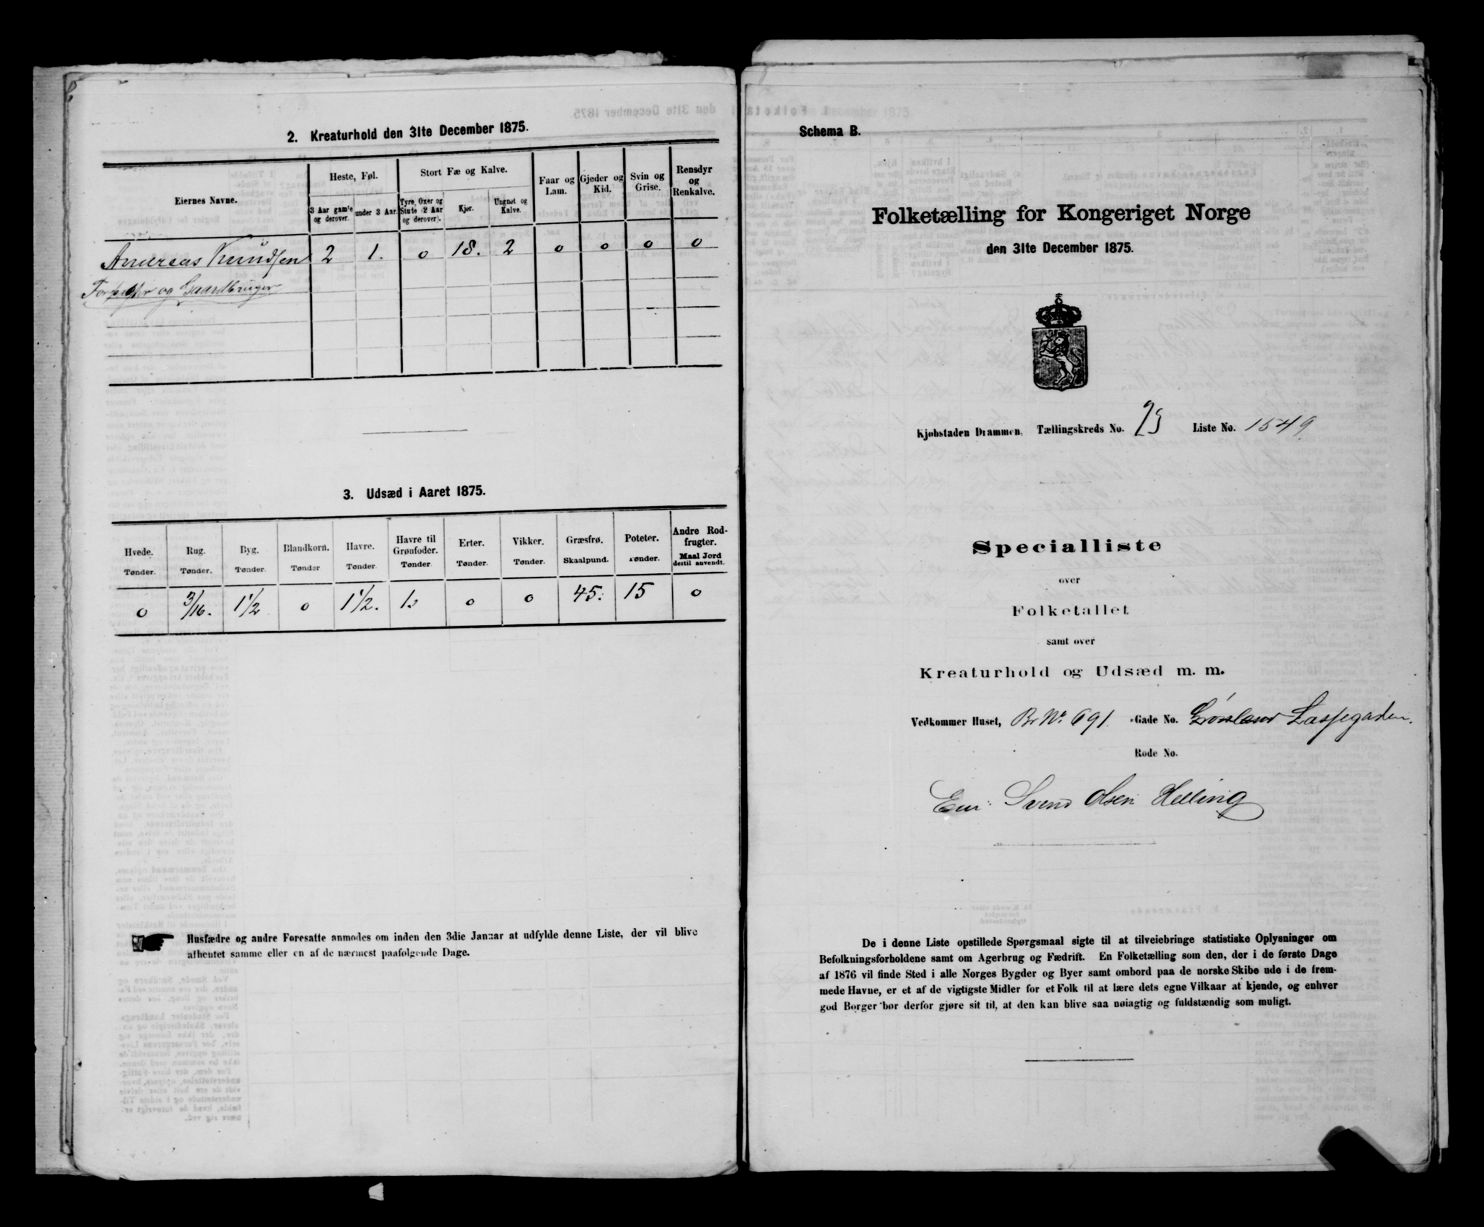 2. Kreaturhold den 31te December 1875.
Eiernes Navne.
Heste, Føl.
Stort Fæ og Kalve.
Faar og Lam.
Gjeder og Kid.
Svin og Grise.
Rensdyr og Renkalve.
3 Aar gamle og derover.
under 3 Aar.
Tyre, Oxer og Stude (2 Aar og derover).
Kjør.
Ungnet og Kalve.
Andreas Knudsen 2 1. 0 18. 2 0 0 0 0
og Gaardbruger
3. Udsæd i Aaret 1875.
Hvede. Rug. Byg. Blandkorn. Havre. Havre til Grønfoder. Erter. Vikker. Græsfrø. Poteter. Andre Rodfrugter.
Tønder. Tønder. Tønder. Tønder Tønder. Tønder. Tønder. Tønder. Skaalpund. Tønder. Maal Jord dertil anvendt.
0 3/16. 1 1/2 0 1 1/2. 1. 0 0 45. 15 0
Husfædre og andre Foresatte anmodes om inden den 3die Januar at udfylde denne Liste, der vil blive
afhentet samme eller en af de nærmest paafølgende Dage.
Schema B.
Folketælling for Kongeriget Norge
den 31te December 1875.
Kjøbstaden Drammen. Tællingskreds No. 23 Liste No. 1549
Specialliste
over
Folketallet
samt over
Kreaturhold og Udsæd m. m.
Vedkommer Huset, Br No 691 Gade No. Grønland Lassegaden.
Rode No.
Eier: Svend Olsen Helling
De i denne Liste opstillede Spørgsmaal sigte til at tilveiebringe statistiske Oplysninger om
Befolkningsforholdene samt om Agerbrug og Fædrift. En Folketælling som den, der i de første Dage
af 1876 vil finde Sted i alle Norges Bygder og Byer samt ombord paa de norske Skibe ude i de frem-
mede Havne, er et af de vigtigste Midler for et Folk til at lære dets egne Vilkaar at kjende, og enhver
god Borger bør derfor gjøre sit til, at den kan blive saa nøiagtig og fuldstændig som muligt.